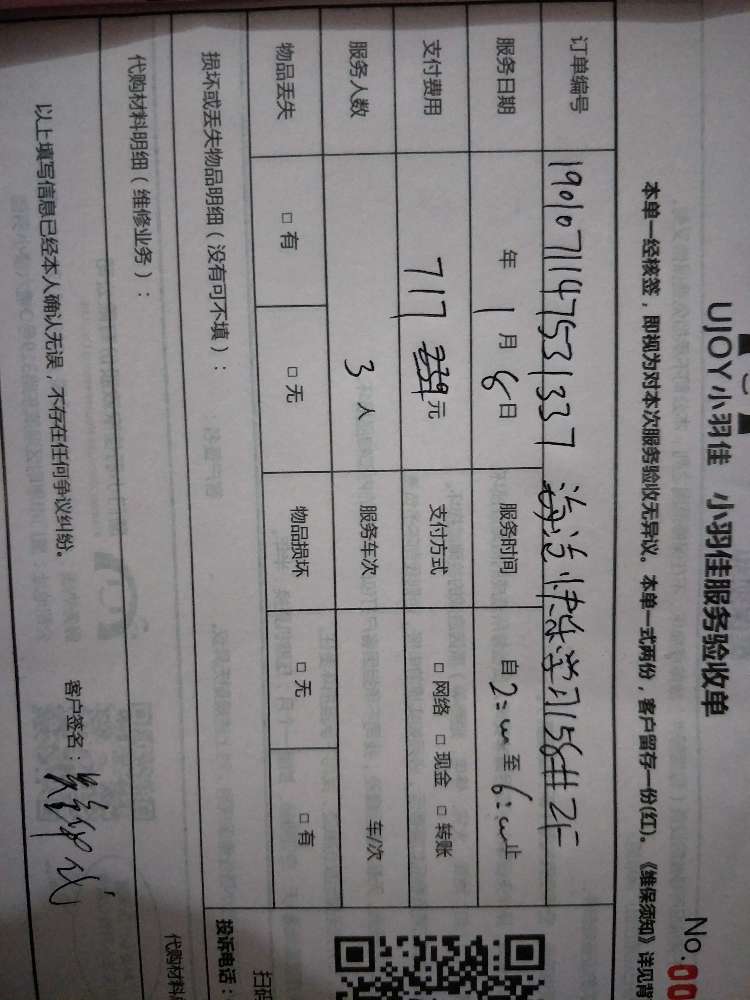 UJOY小羽佳 小羽佳服务验收单
No.00
本单一经核签，即视为对本次服务验收无异议。本单一式两份，客户留存一份(红)。《维保须知》详见背
订单编号 190107114753 1337 快乐学习158#2F
服务日期 年 1 月 8 日 服务时间 自 2:00 至 6:00 止
支付费用 717 元 支付方式 □ 网络 □ 现金 □ 转账
服务人数 3 人 服务车次 车/次
物品丢失 □ 有 □ 无 物品损坏 □ 无 □ 有
损坏或丢失物品明细（没有可不填）：
投诉电话：
扫码
代购材料明细（维修业务）：
代购材料
以上填写信息已经本人确认无误，不存在任何争议纠纷。
客户签名：